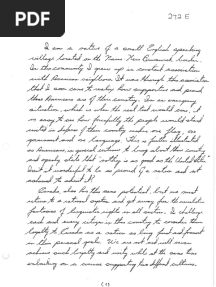 PDF
272 E
I am a native of a small English speaking
village located on the New Brunswick border.
In this community I grew up in constant association
with American neighbors. It was through this association
that I soon came to realize how supportive and proud
these Americans are of their country. In an emergency
situation, which is when the real test would come, it
is easy to see how forcefully the people would stand
united in defense of their country under one flag, one
government and one language. This is further illustrated
as Americans, on special occasions to brag about their country
and openly state that "nothing is as good as the United States".
Isn't it wonderful to be so proud of a nation and not
ashamed to admit it.
Canada also has this same potential, but we must
return to a national system and get away from the
of linguistic rights in all sectors. I challenge
each and every citizen in this country to consider their
loyalty to Canada as a nation as being first and foremost
in their personal goals. We are not and will never
achieve such loyalty and unity while at the same time
embarking on a course supporting two different cultures.